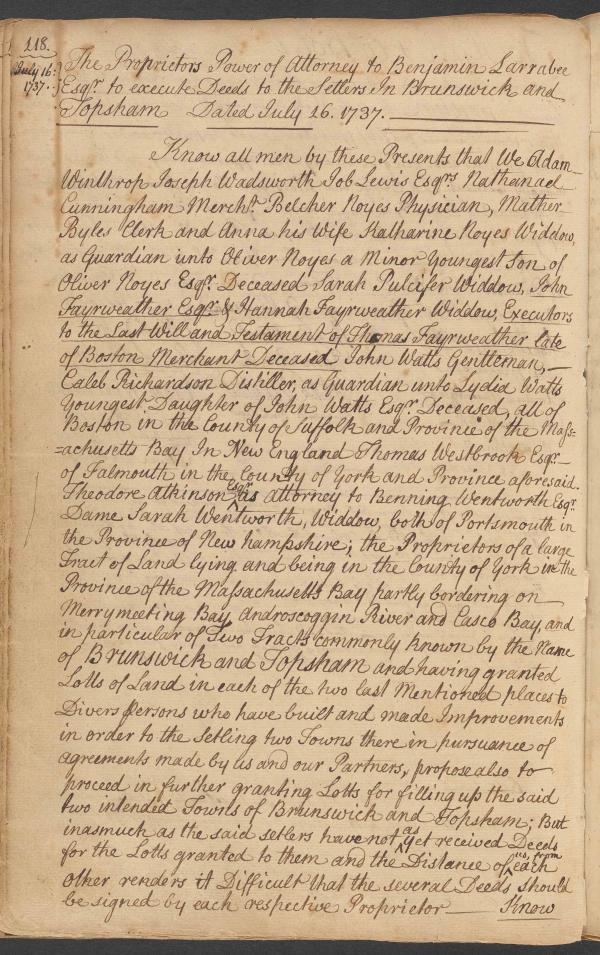 218.
July 16:
1737.
The Proprietors Power of Attorney to Benjamin Larrabee
Esqr. to execute Deeds to the Setlers In Brunswick and
Topsham Dated July 26. 1737.
Know all men by these Presents that We Adam
Winthrop Joseph Wadsworth Job Lewis Esqrs Nathanael
Cunningham Mercht. Belcher Noyes Physician, Mather
Byles Clerk and Anna his Wife Katharine Noyes Widdow,
as Guardian unto Oliver Noyes a Minor Youngest Son of
Oliver Noyes Esqr. Deceased Sarah Pulcifer Widdow, John
Fayrweather Esqr. & Hannah Fayrweather Widdow, Executors
to the Last Will and Testament of Thomas Fayrweather late
of Boston Merchant Deceased John Watts Gentleman,
Caleb Richardson Distiller, as Guardian unto Lydia Watts
Youngest Daughter of John Watts Esqr. Deceased, all of
Boston in the County of Suffolk and Province of the Mass=
=achusetts Bay In New England Thomas Westbrook Esqr.
of Falmouth in the County of York and Province aforesaid.
Theodore Atkinson Esqr. as attorney to Benning Wentworth Esqr.
Dame Sarah Wentworth, Widdow, both of Portsmouth in
the Province of New hampshire; the Proprietors of a large
Tract of Land lying and being in the County of York in the
Province of the Massachusetts Bay partly bordering on
Merrymeeting Bay, Androscoggin River and Casco Bay, and
in particular of Two Tracts commonly known by the Name
of Brunswick and Topsham and having granted
Lotts of Land in each of the two last Mentioned places to
Divers Persons who have built and made Improvements
in order to the Setling two Towns there in pursuance of
agreements made by us and our Partners, propose also to
proceed in further granting Lotts for filling up the said
two intended Towns of Brunswick and Topsham; But
inasmuch as the said setlers have not as yet received Deeds
for the Lotts granted to them and the Distance of us, from each
other renders it Difficult that the several Deeds should
be signed by each respective Proprietor Know